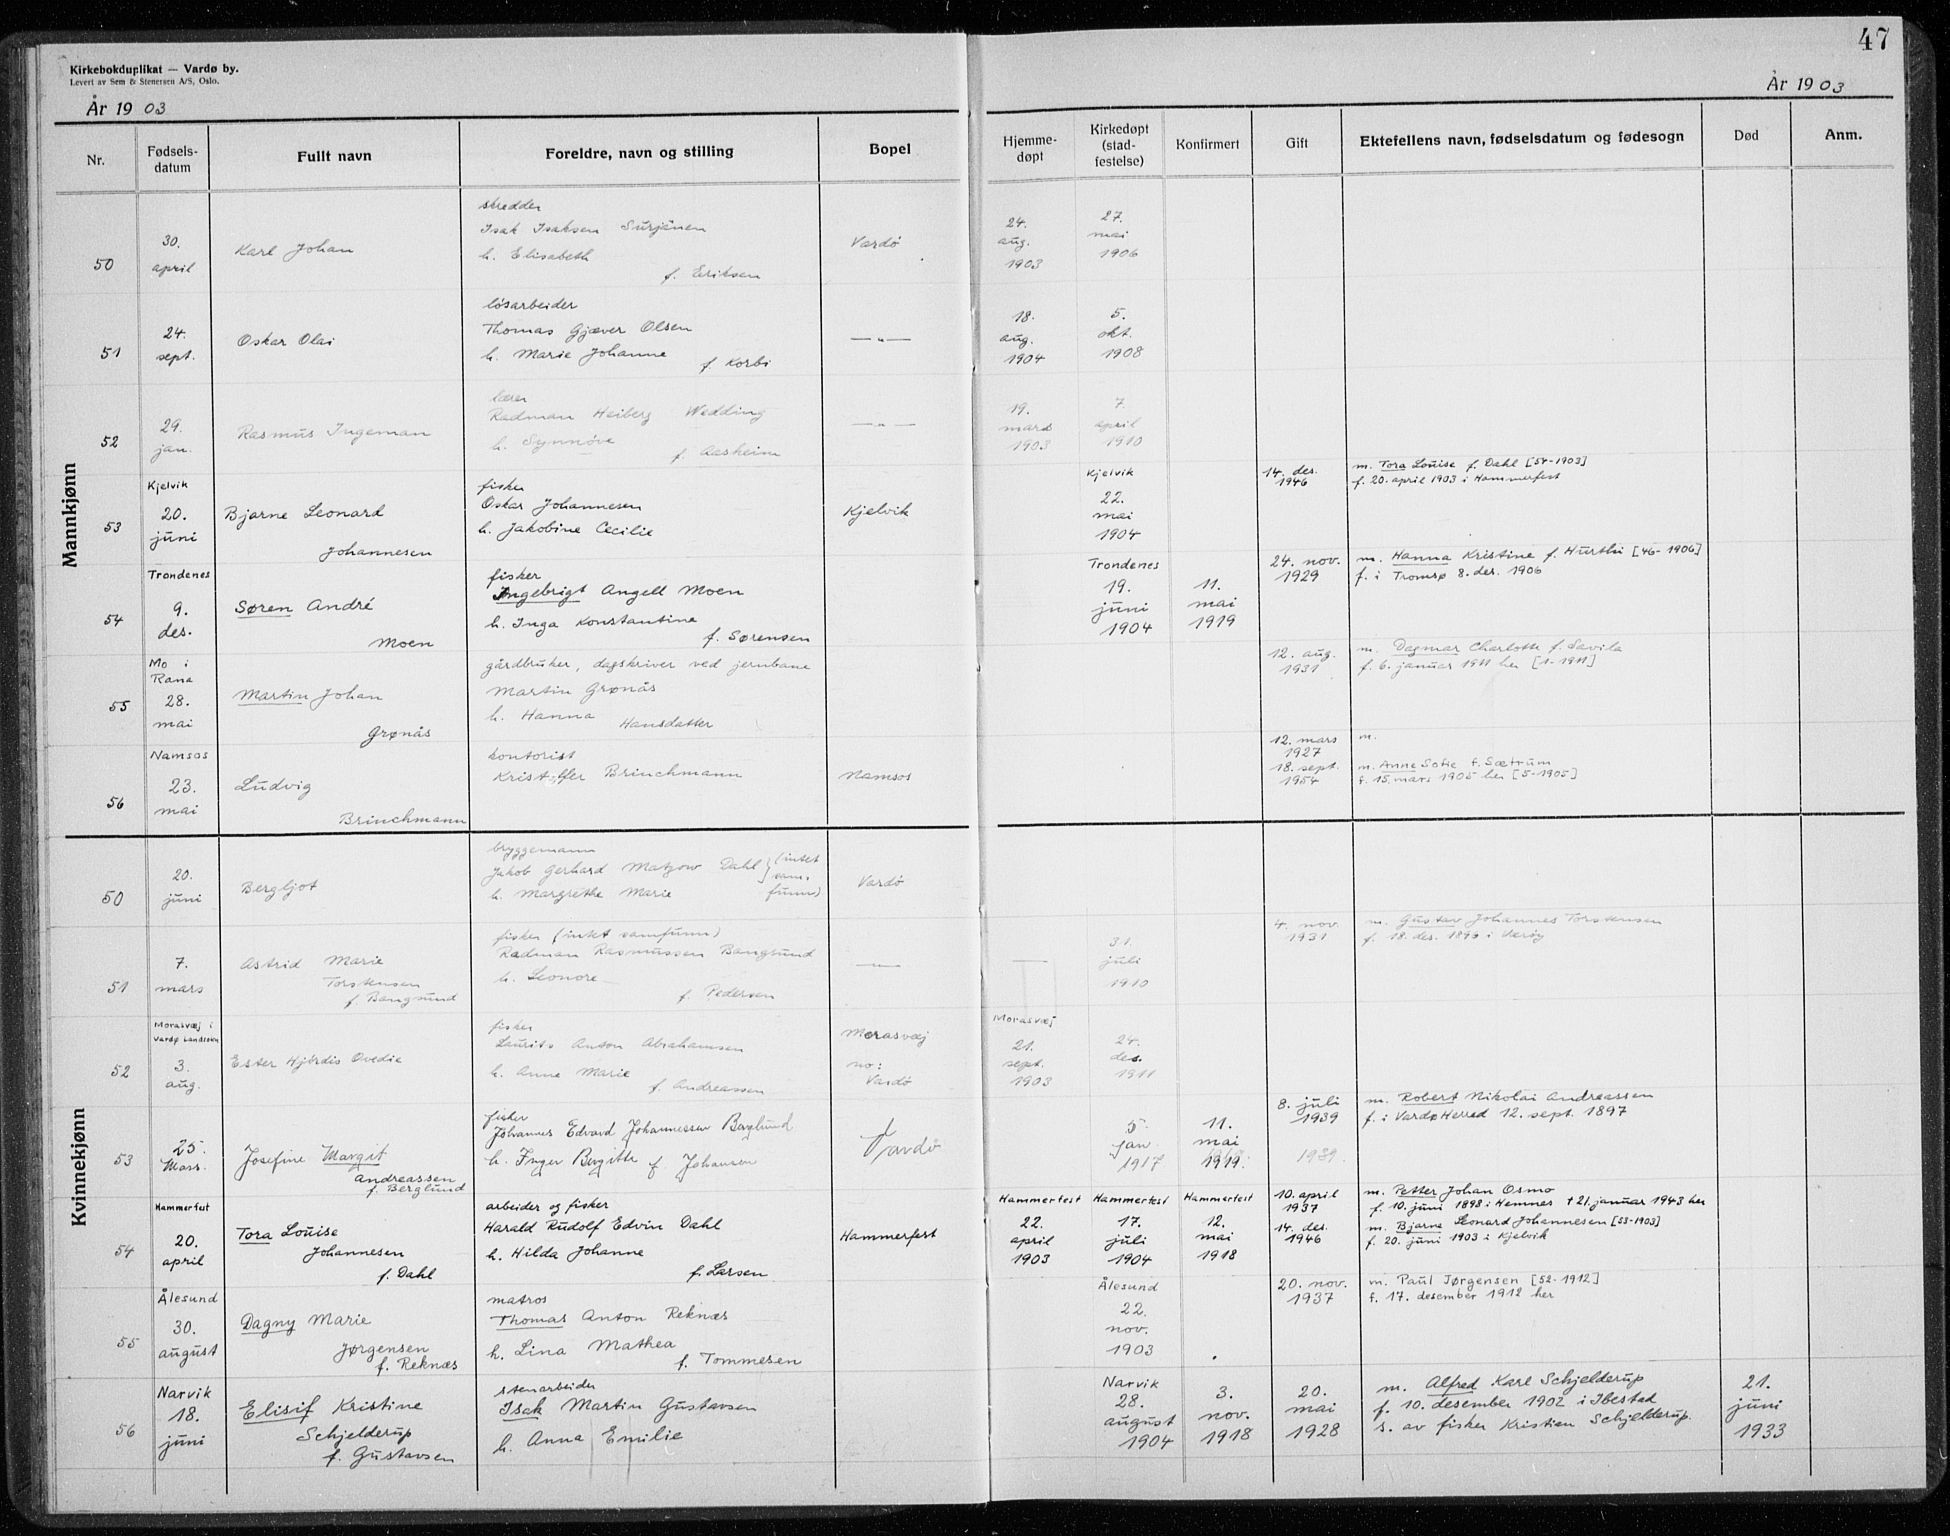 47
Kirkebokduplikat — Vardø by.
Levert av Sem & Stenersen A/S, Oslo.
År 1903
År 1903
Nr.
Fødsels-
datum
Fullt navn
Foreldre, navn og stilling
Bopel
Hjemme-
døpt
Kirkedøpt
(stad-
festelse)
Konfirmert
Gift
Ektefellens navn, fødselsdatum og fødesogn
Død
Anm.
Mannkjønn
50
30.
april
Karl Johan
skredder
Isak Isaksen Surjånen
h. Elisabeth
f. Eriksen
Vardø
24.
aug.
1903
27.
mai
1906
51
24.
sept.
Oskar Olai
løsarbeider
Thomas Gjæver Olsen
h. Marie Johanne
f. Korbi
— " —
18.
aug.
1904
5.
okt.
1908
52
29.
jan.
Rasmus Ingeman
lærer
Radman Heiberg Wedding
h. Synnøve
f. Aasheim
— " —
19.
mars
1903
7.
april
1910
53
Kjelvik
20.
juni
Bjarne Leonard
Johannesen
fisker
Oskar Johannesen
h. Jakobine Cecilie
Kjelvik
Kjelvik
22.
mai
1904
14. des.
1946
m. Tora Louise f. Dahl [54-1903]
f. 20. april 1903 i Hammerfest
54
Trondenes
9.
des.
Søren André
Moen
fisker
Ingebrigt Angell Moen
h. Inga Konstantine
f. Sørensen
Trondenes
19.
juni
1904
11.
mai
1919
24. nov.
1929
m. Hanna Kristine f. Hurthi [46-1906]
f. i Tromsø 8. des. 1906
55
Mo i
Rana
28.
mai
Martin Johan
Grønås
gårdbruker, dagskriver ved jernbane
Martin Grønås
h. Hanna Hansdatter
12. aug.
1931
m. Dagmar Charlotte f. Savila
f. 6. januar 1911 her [1-1911]
56
Namsos
23.
mai
Ludvig
Brinchmann
kontorist
Kristoffer Brinchmann
Namsos
12. mars
1927
m.
18. sept.
1954
m. Anne Sofie f. Sætrum
f. 15. mars 1905 her [5-1905]
Kvinnekjønn
50
20.
juni
Bergljot
bryggemann
Jakob Gerhard Matzow Dahl } (intet
sam.
h. Margrethe Marie funn)
Vardø
51
7.
mars
Astrid Marie
Torstensen
f. Bangsund
fisker (intet samfunn)
Radman Rasmussen Bangsund
h. Leonore
f. Pedersen
—
—
31.
juli
1910
4. nov.
1931
m. Gustav Johannes Torstensen
f. 18. des. 1896 i Værøy
52
Morasvæj i
Vardø Landsokn
3.
aug.
Ester Hjørdis Ovedie
fisker
Laurits Anton Abrahamsen
h. Anne Marie
f. Andreassen
Morasvæj
no:
Vardø
Morasvæj
21.
sept.
1903
24.
des.
1911
53
25.
Mars.
Josefine Margit
Andreassen
f. Berglund
fisker
Johannes Edvard Johannessen Berglund
h. Inger Bergitte f. Johansen
Vardø
5.
Jan.
1917
11.
mai
1919.
8. juli
1939
1939
m. Robert Nikolai Andreassen
f. i Vardø Herred 12. sept. 1897
54
Hammerfest
20.
april
Tora Louise
Johannesen
f. Dahl
arbeider og fisker
Harald Rudolf Edvin Dahl
h. Hilda Johanne
f. Larsen
Hammerfest
Hammerfest
22.
april
1903
Hammerfest
17.
juli
1904
Hammerfest
12.
mai
1918
10. april
1937
14. des.
1946
m. Petter Johan Osmo
f. 10. juni 1898 i Hemnes † 21. januar 1943 her
m. Bjarne Leonard Johannesen [53-1903]
f. 20. juni 1903 i Kjelvik
55
Ålesund
30.
august
Dagny Marie
Jørgensen
f. Reknæs
matros
Thomas Anton Reknæs
h. Lina Mathea
f. Tommesen
Ålesund
22.
nov.
1903
20. nov.
1937
m. Paul Jørgensen [52-1912]
f. 17. desember 1912 her
56
Narvik
18.
juni
Elisif Kristine
Schjelderup
f. Gustavsen
stenarbeider
Isak Martin Gustavsen
h. Anna Emilie
Narvik
28.
august
1904
3.
nov.
1918
20.
mai
1928
m. Alfred Karl Schjelderup
f. 10. desember 1902 i Ibestad
s. av fisker Kristian Schjelderup.
21.
juni
1933